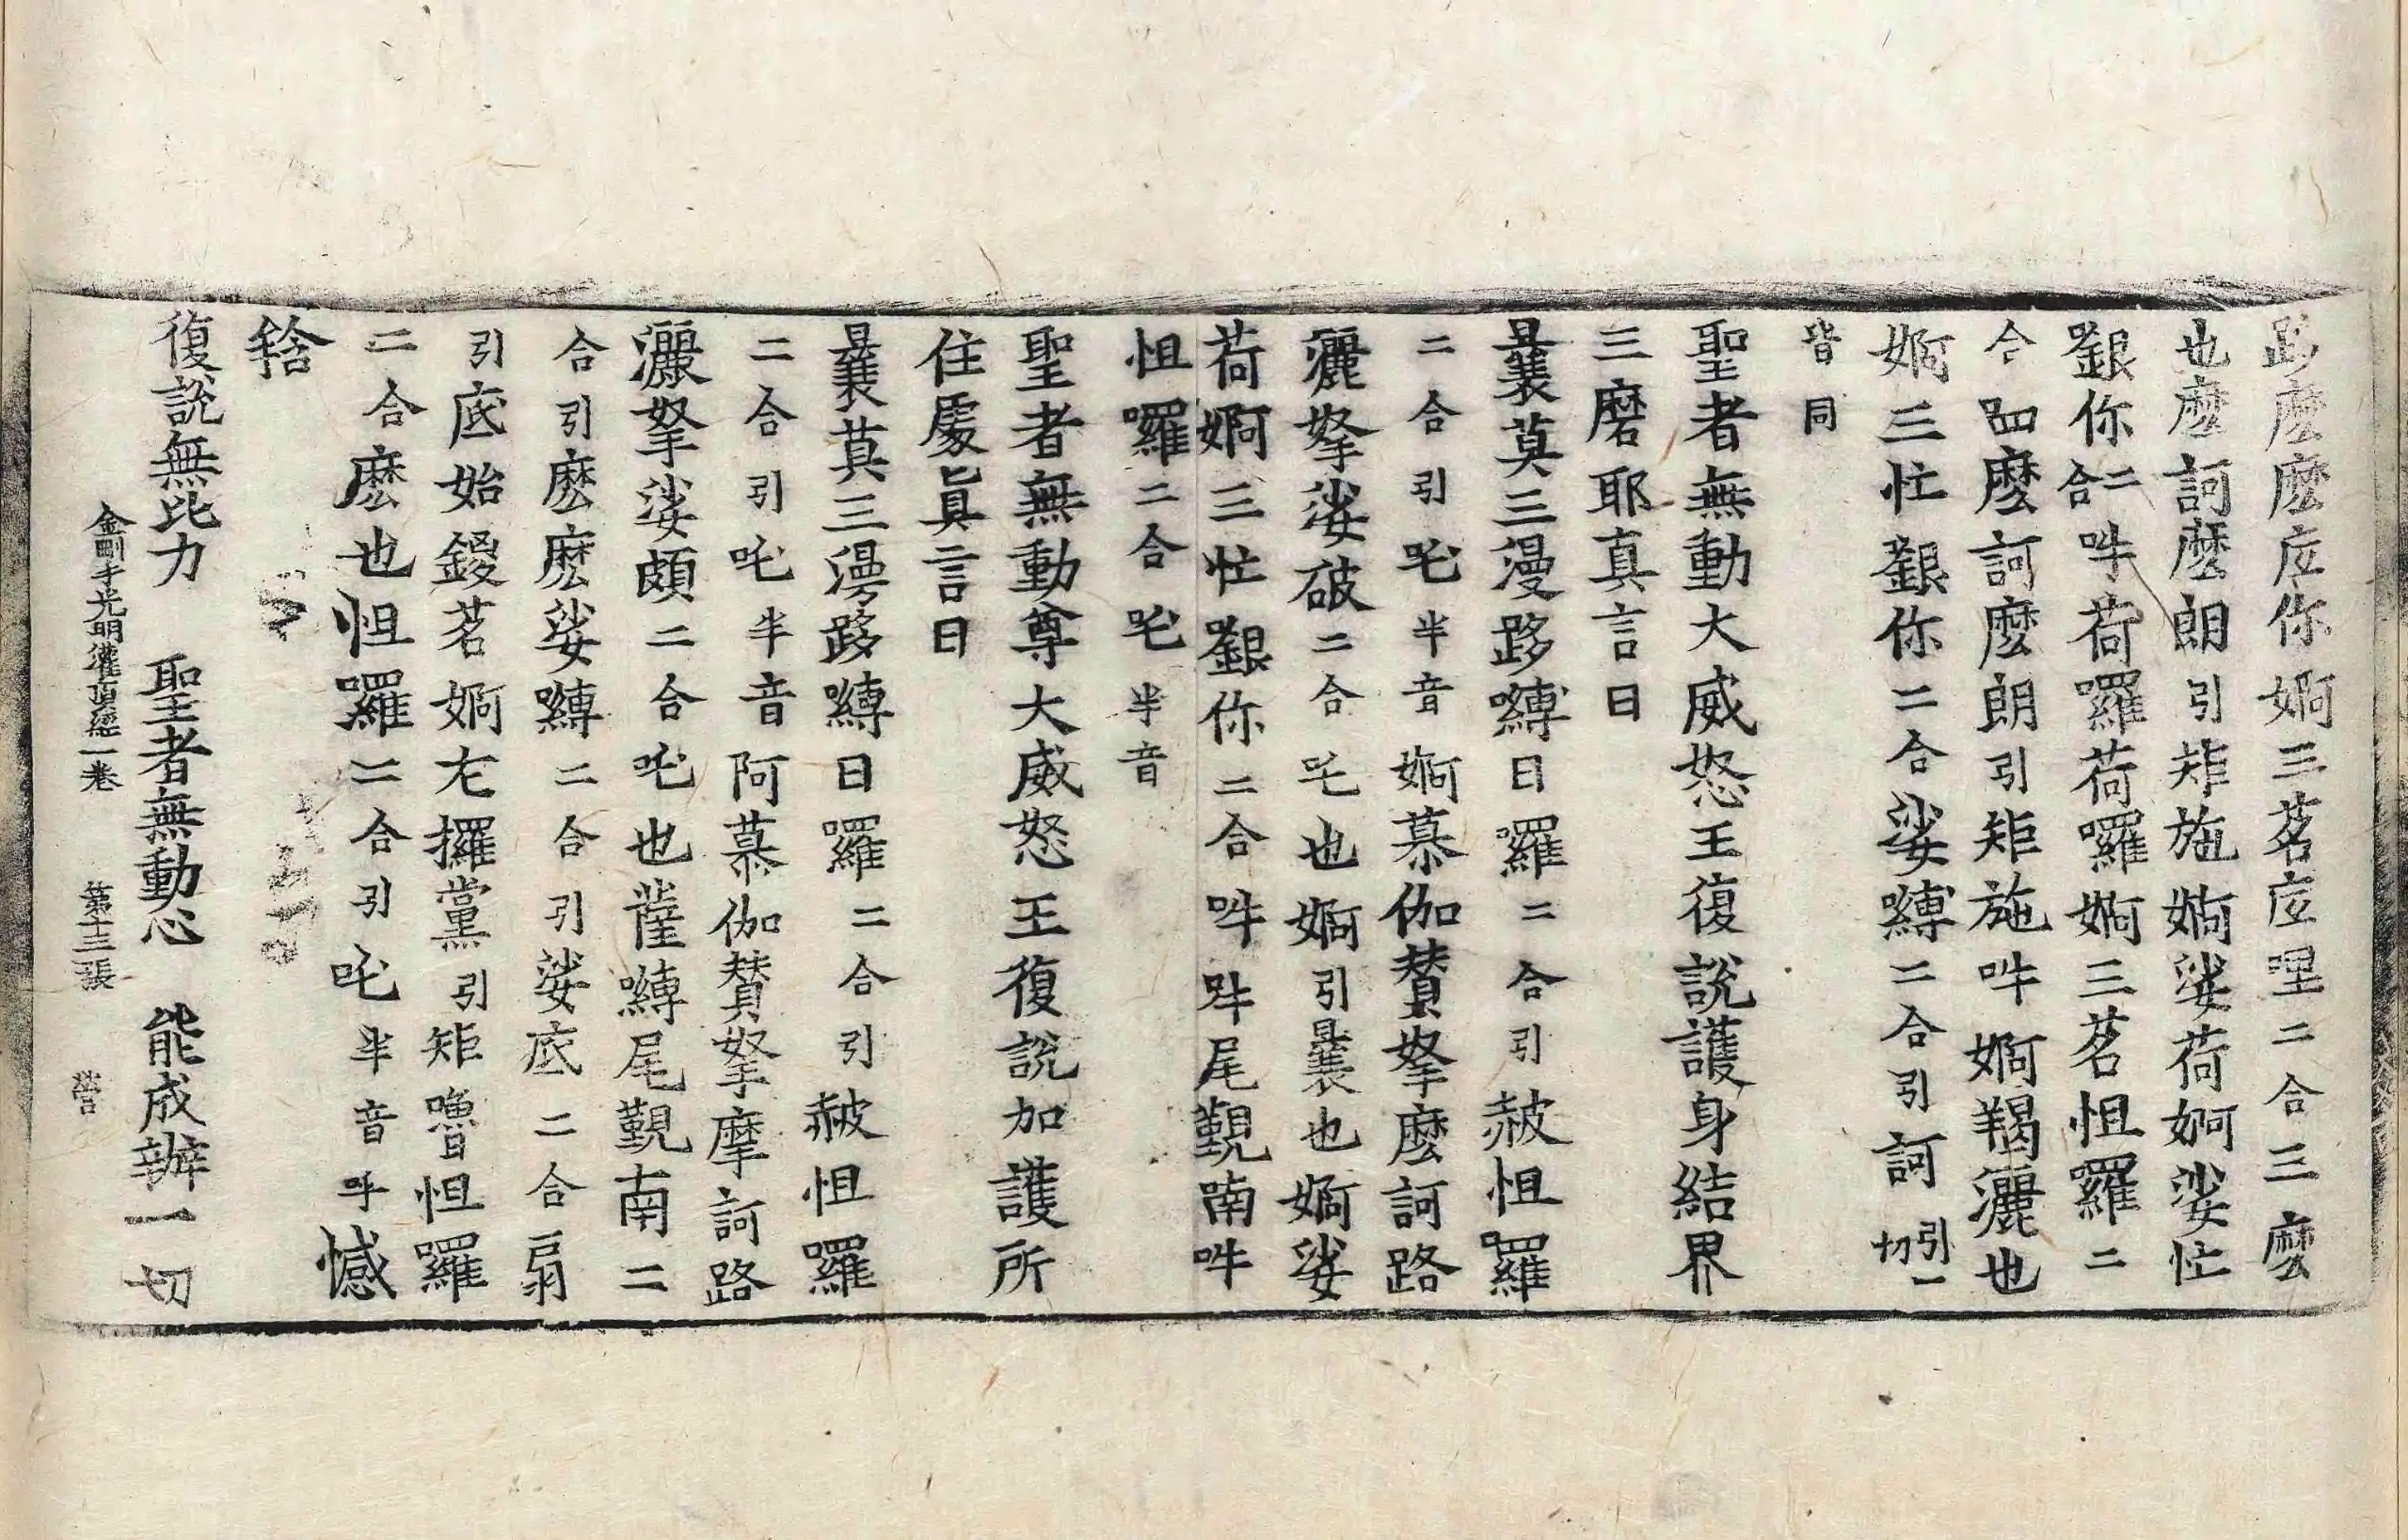 跢麼麼庅你婀三茗庅哩二合三麼
也麼訶麼朗引矩施婀娑荷婀娑忙
銀你二合吽荷囉荷囉婀三茗怛羅二
合㗂麼訶麼朗引矩施吽婀羯灑也
婀三忙銀你二合娑嚩二合引訶引一切
皆同
聖者無動大威怒王復說護身結界
三磨耶真言曰
曩莫三漫跢嚩日羅二合引赧怛羅
二合引吒半音婀慕伽贊拏麼訶路
灑拏娑破二合吒也婀引曩也婀娑
荷婀三忙銀你二合吽吽尾覲喃吽
怛囉二合吒半音
聖者無動尊大威怒王復說加護所
住處眞言曰
曩莫三漫跢嚩日羅二合引赧怛羅
二合引吒半音阿慕伽贊拏摩訶路
灑拏娑頗二合吒也薩嚩尾覲南二
合引麼麼娑嚩二合引娑底二合扇
引底始鍐茗婀左攞黨引矩嚕怛羅
二合麼也怛羅二合引吒半音吽憾
𤚥
復說無比力 聖者無動心 能成辦一切
金剛手光明灌頂經一卷 第十三張 營